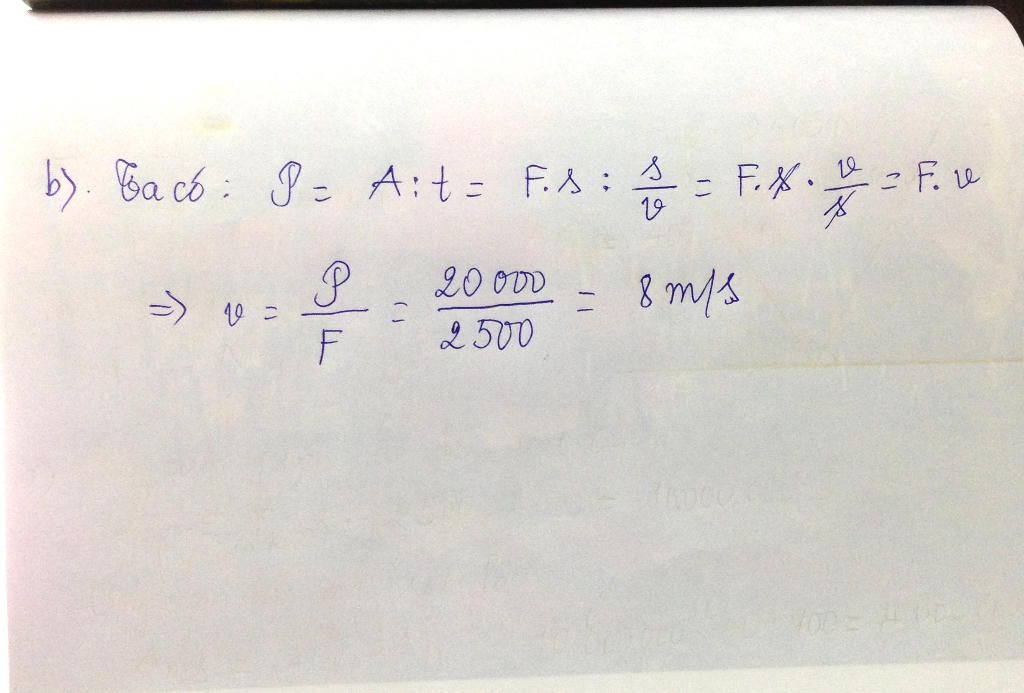 b). Ta có: P = A:t = F.s : s/v = F.s . v/s = F.v
=> v = P/F = 20000/2500 = 8 m/s